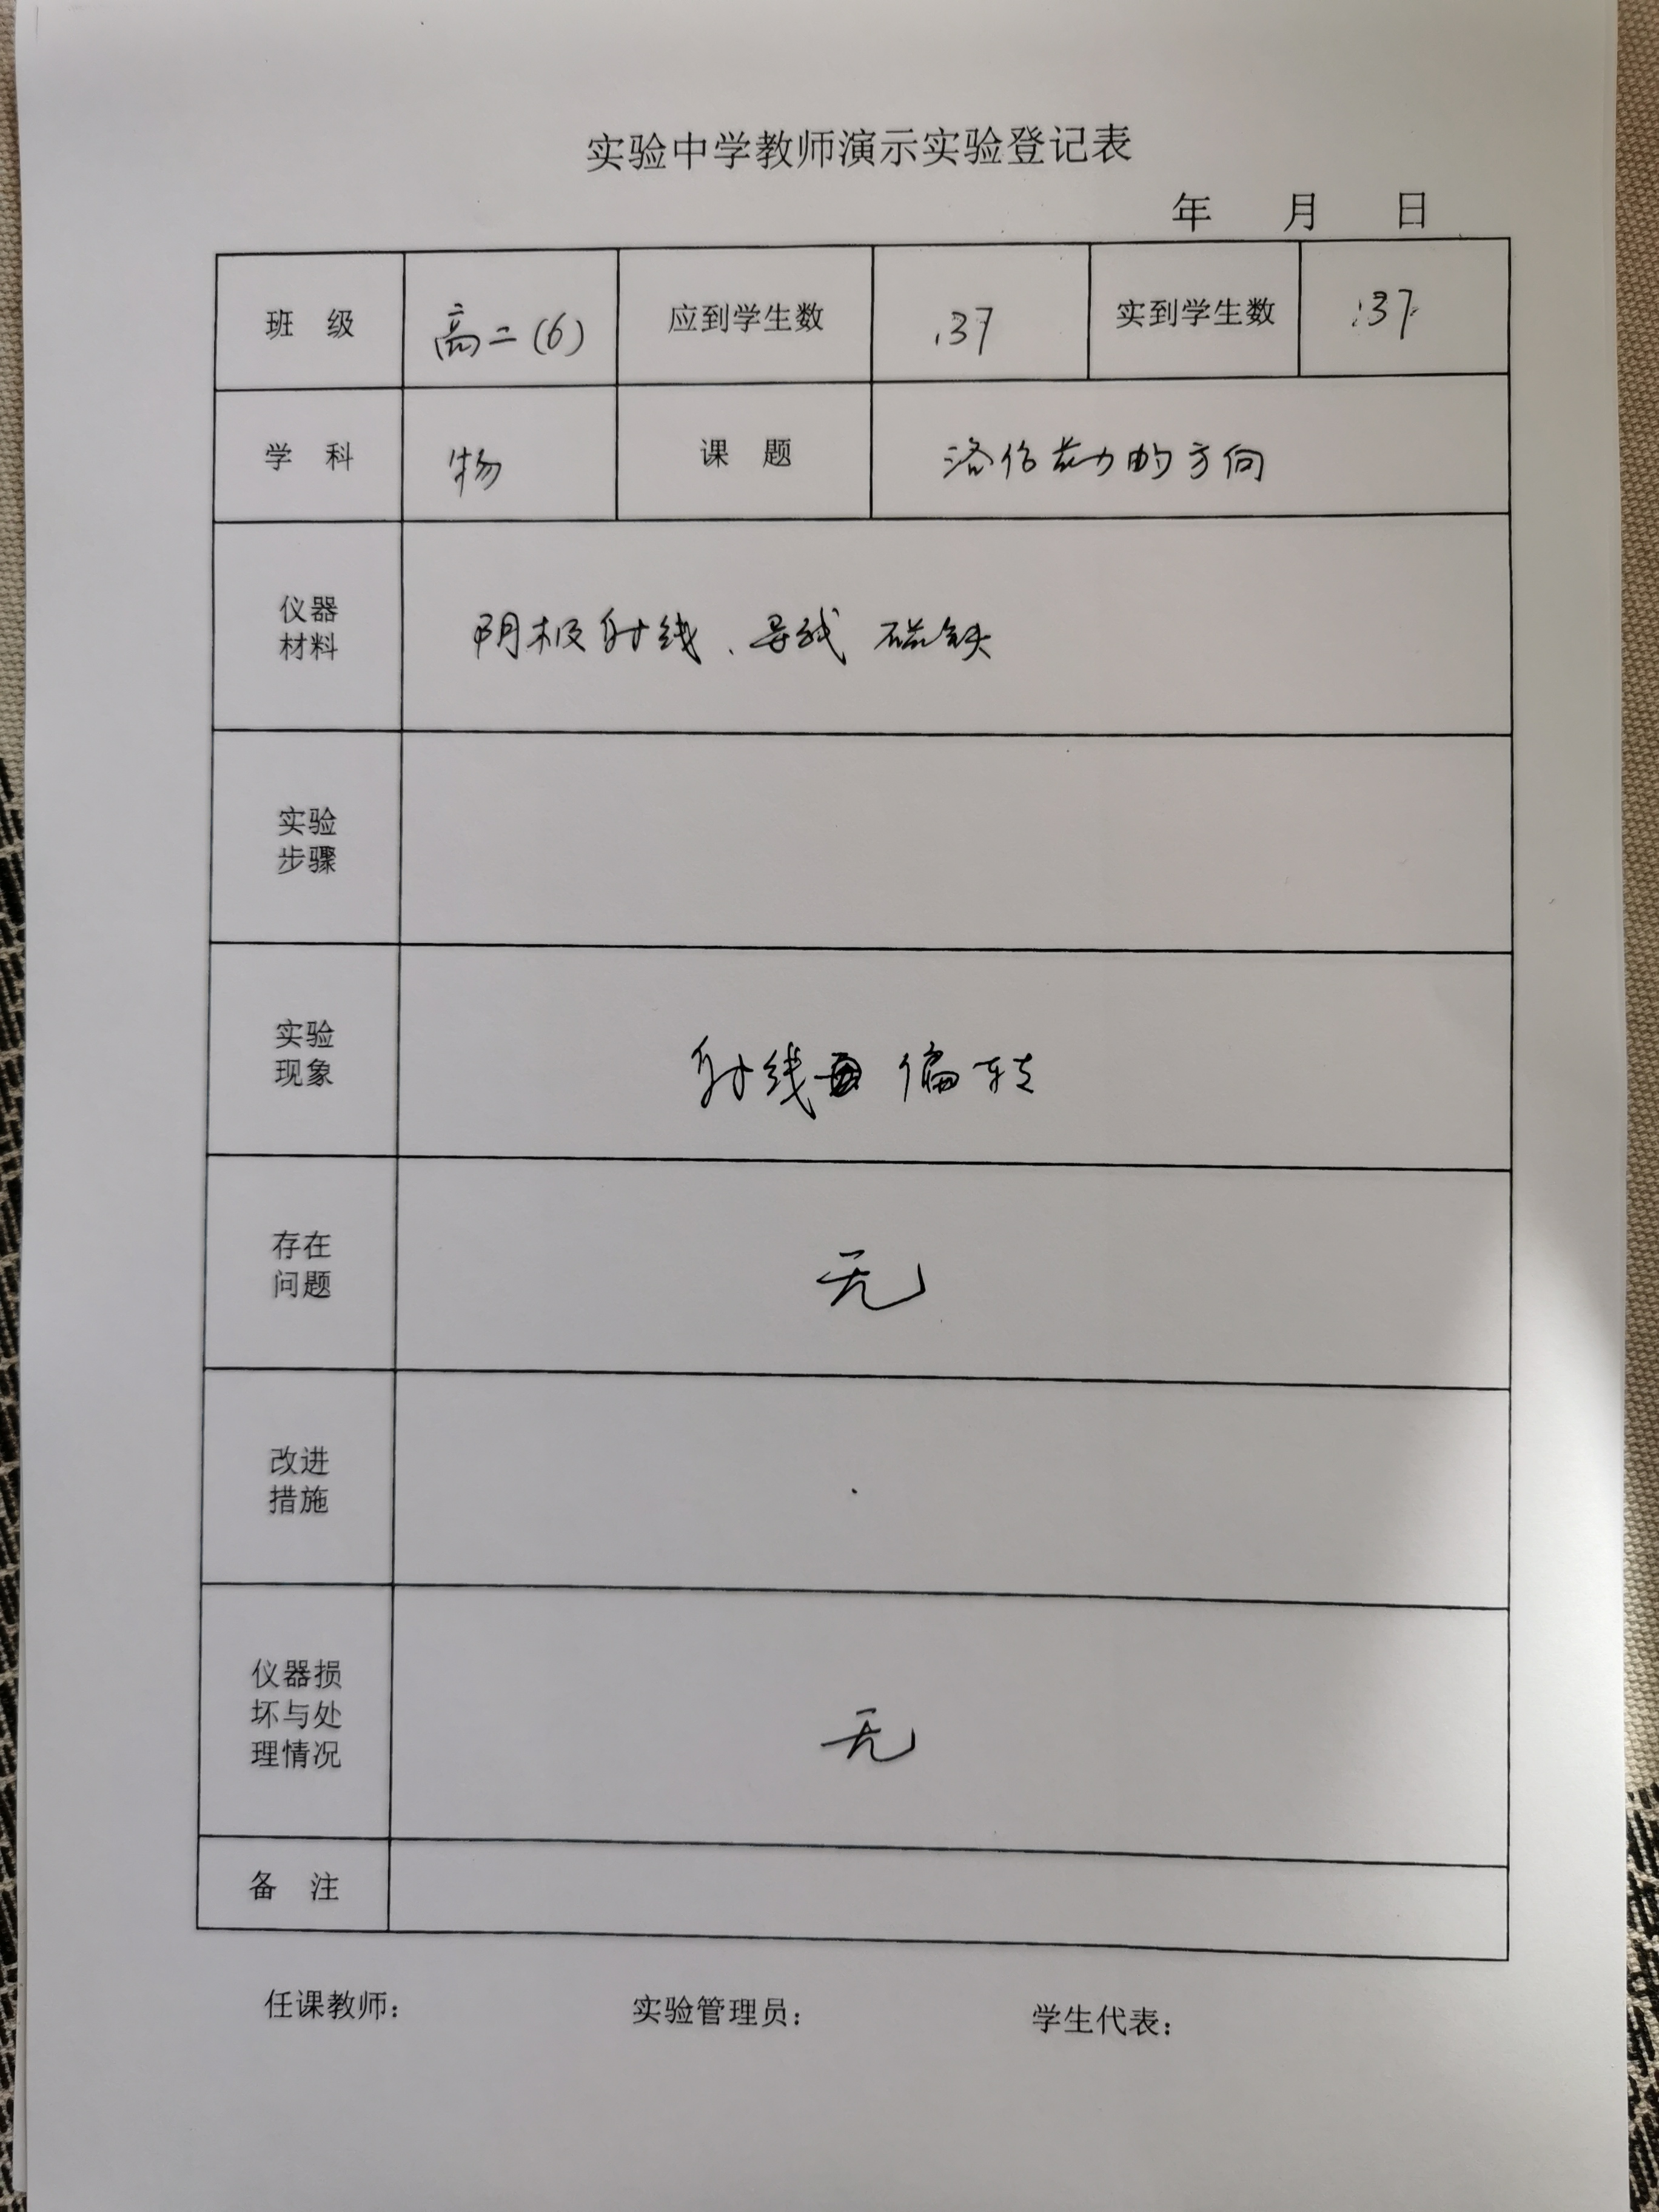 实验中学教师演示实验登记表
年 月 日
班 级 高二(6) 应到学生数 37 实到学生数 37
学 科 物 课 题 洛伦兹力的方向
仪器
材料
阴极射线、导线 磁铁
实验
步骤
实验
现象
射线 偏转
存在
问题
无
改进
措施
仪器损
坏与处
理情况
无
备 注
任课教师: 实验管理员: 学生代表: